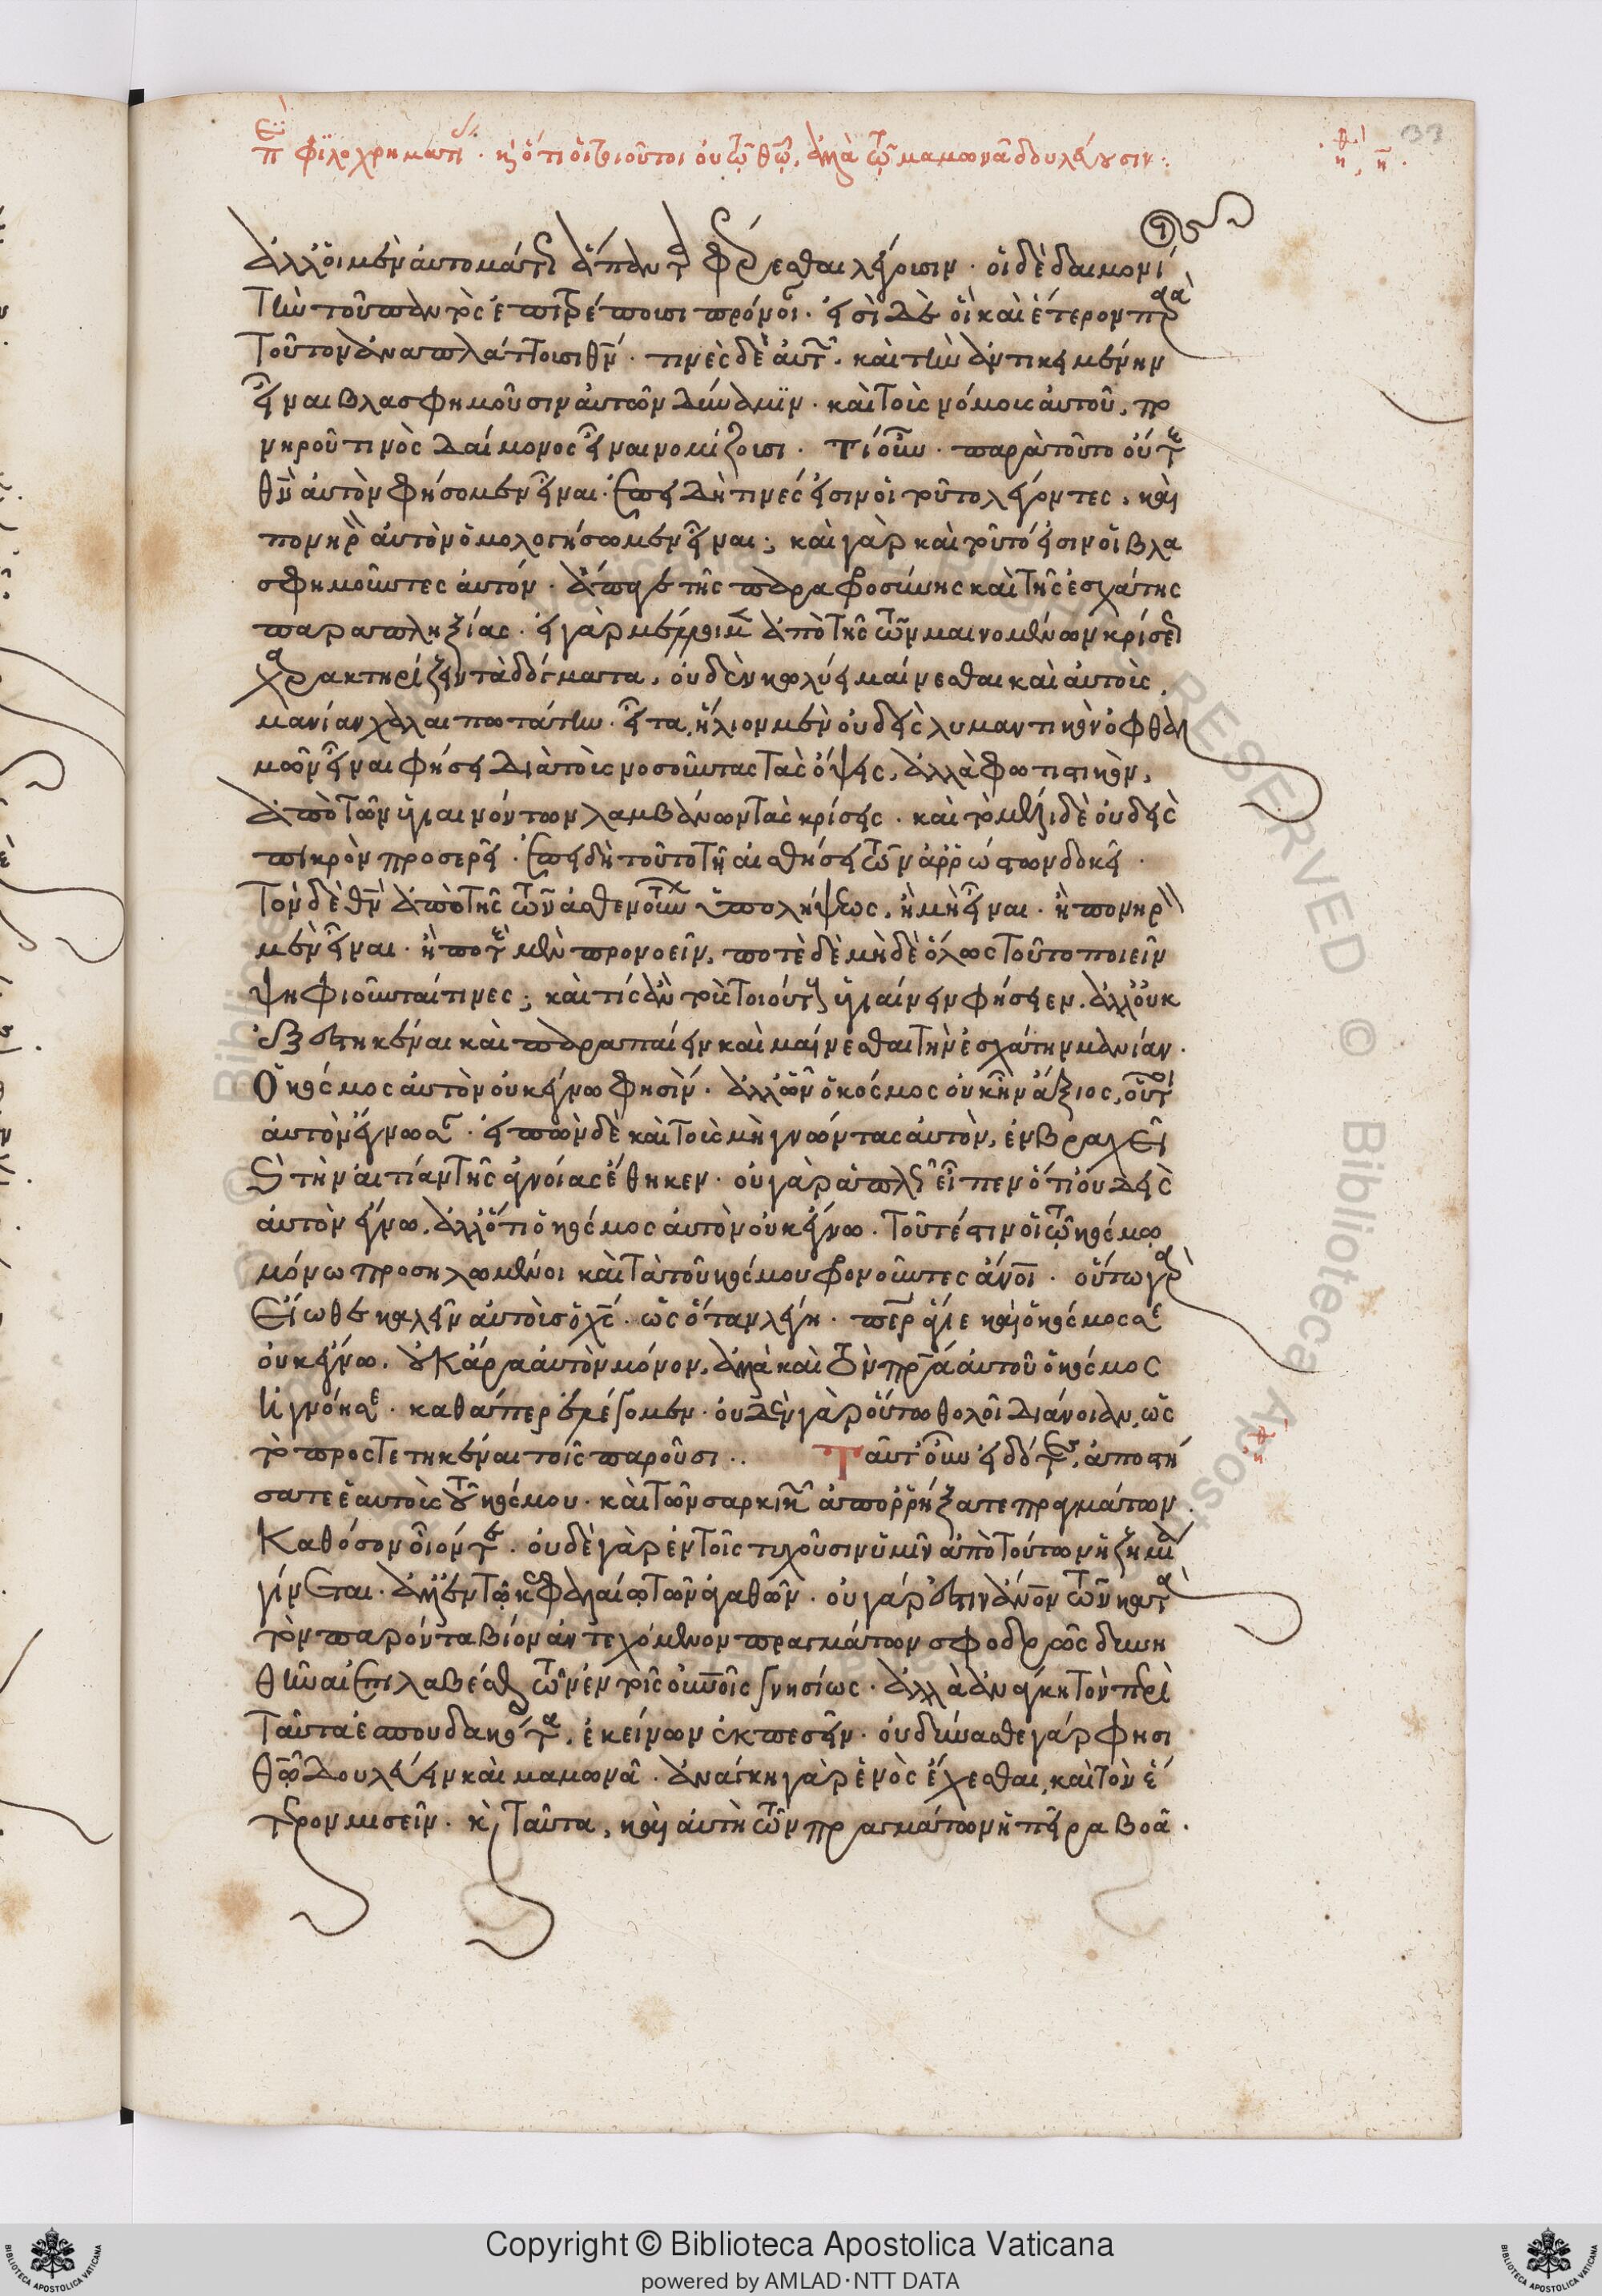 φιλοχρηματί· κ ὅτι οἱ τοιοῦτοι οὐ τῷ θῷ, ἀλλὰ τῷ μαμωνᾶ δουλεύουσιν:
ἀλλ' οἱ μὲν αὐτομάτως ἅπαντα φέρεσθαι λέγουσιν· οἱ δὲ δαιμονί
τὴν τοῦ παντὸς ἐπιτρέπουσι πρόνοι· εἰσὶ δὲ οἳ καὶ ἕτερον παρὰ
τοῦτον ἀναπλάττουσι θν· τινὲς δὲ αὐτ, καὶ τὴν ἀντικειμένην
εἶναι βλασφημοῦσιν αὐτῶν δύναμϊν· καὶ τοὺς νόμους αὐτοῦ, πο
νηροῦ τινὸς δαίμονος εἶναι νομίζουσι· τί οὖν· παρὰ τοῦτο οὔτε
θν αὐτὸν φήσομεν εἶναι· ἐπειδή τινές εἰσιν οἱ τοῦτο λέγοντες, καὶ
πονηρ αὐτὸν ὁμολογήσωμεν εἶναι; καὶ γὰρ καὶ τοῦτό εἰσιν οἱ βλα
σφημοῦντες αὐτόν· ἄπαγε τῆς παραφροσύνης καὶ τῆς ἐσχάτης
παραπληξίας· εἰ γὰρ μέλλοιμεν ἀπὸ τῆς τῶν μαινομένων κρίσεως
χαρακτηρίζειν τὰ δόγματα, οὐδὲν κωλύει μαίνεσθαι καὶ αὐτοὺς,
μανίαν χαλαιπωτάτην· εἶτα, ἥλιον μὲν οὐδεὶς λυμαντικὸν ὀφθαλ
μῶν εἶναι φήσει διὰ τοὺς νοσοῦντας τὰς ὄψεις, ἀλλὰ φωτιστικὸν,
ἀπὸ τῶν ὑγιαινόντων λαμβάνων τὰς κρίσεις· καὶ τὸ μέλι δὲ οὐδεὶς
πικρὸν προσερεῖ· ἐπειδὴ τοῦτο τῇ αἰσθήσει τῶν ἀρρώστων δοκεῖ·
τὸν δὲ θν ἀπὸ τῆς τῶν ἀσθενούντων ὑπολήψεως, ἢ μὴ εἶναι· ἢ πονηρ
μὲν εἶναι· ἢ ποτὲ μὲν προνοεῖν, ποτὲ δὲ μὴ δὲ ὅλως τοῦτο ποιεῖν
ψηφιοῦνταί τινες; καὶ τίς ἂν τοὺς τοιούτους ὑγιαίνειν φήσειεν. ἀλλ' οὐκ
ἐξεστηκέναι καὶ παραπαίειν καὶ μαίνεσθαι τὴν ἐσχάτην μανίαν·
Ὁ κόσμος αὐτὸν οὐκ ἔγνω φησίν· ἀλλ' ὧν ὁ κόσμος οὐκ ἦν ἄξιος, οὗτοι
αὐτὸν ἔγνωσ· εἰπὼν δὲ καὶ τοὺς μὴ γνῶντας αὐτὸν, ἐν βραχεῖ
καὶ τὴν αἰτίαν τῆς ἀγνοίας ἔθηκεν· οὐ γὰρ ἁπλῶς εἶπεν ὅτι οὐδεὶς
αὐτὸν ἔγνω, ἀλλ' ὅτι ὁ κόσμος αὐτὸν οὐκ ἔγνω· τοῦτέστιν οἱ τῷ κόσμῳ
μόνῳ προσηλωμένοι καὶ τὰ τοῦ κόσμου φρονοῦντες ἄνοι· οὕτω γὰρ
εἴωθε καλεῖν αὐτοὺς ὁ χς· ὡς ὅταν λέγη· περ ἅγιε καὶ ὁ κόσμος σε
οὐκ ἔγνω. οὐκ ἄρα αὐτὸν μόνον, ἀλλὰ καὶ τὸν πρα αὐτοῦ ὁ κόσμος
ἠγνόησε· καθάπερ ἐρέσομεν· οὐδὲν γὰρ οὕτω θολοῖ διάνοιαν, ὡς
τὸ προστετηκέναι τοῖς παροῦσι.. Ταῦτ' οὖν εἰδότες, ἀποστή
σατε ἑαυτοὺς τοῦ κόσμου· καὶ τῶν σαρκικῶν ἀπορρήξατε πραγμάτων.
Καθόσον οἷόν τε· οὐδὲ γὰρ ἐν τοῖς τυχοῦσιν ὑμῖν ἀπὸ τούτων ἡ ζημία
γίνεται· ἀλλ' ἐν τῷ κεφαλαίῳ τῶν ἀγαθῶν· οὐ γάρ ἐστιν ἄνον τῶν κατὰ
τὸν παρόντα βίον ἀντεχόμενον πραγμάτων σφοδρῶς δυνη
θῆναι ἐπιλαβέσθαι τῶν ἐν τοῖς οὐνοῖς γνησίως· ἀλλὰ ἀνάγκη τὸν περὶ
ταῦτα ἐσπουδακότα, ἐκείνων ἐκπεσεῖν· οὐ δύνασθε γάρ φησι
θῷ δουλεύειν καὶ μαμωνᾶ· ἀνάγκη γὰρ ἑνὸς ἔχεσθαι, καὶ τὸν ἕ
τερον μισεῖν· κ ταῦτα, καὶ αὐτὴ τῶν πραγμάτων ἡ πεῖρα βοᾶ·
Copyright © Biblioteca Apostolica Vaticana
powered by AMLAD·NTT DATA